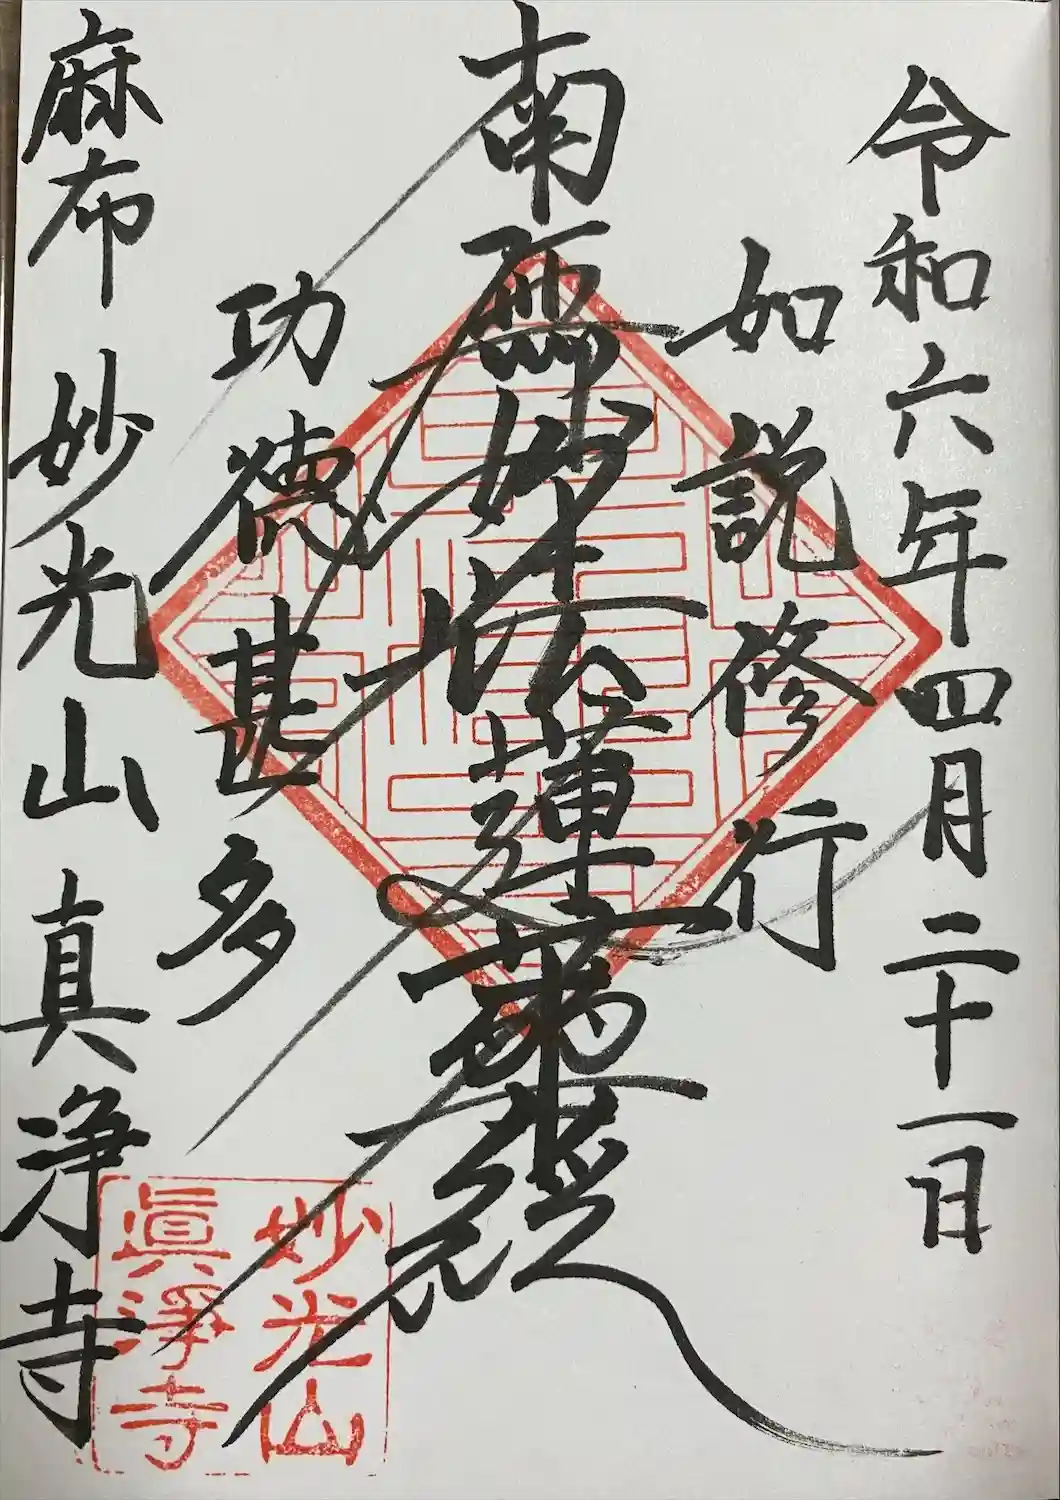 令和六年四月二十一日
如説修行
南無妙法蓮華経
功徳甚多
麻布 妙光山 真浄寺
妙光山
眞淨寺